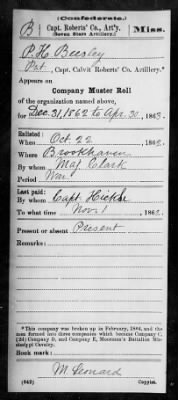 (Confederate.)
B Capt. Roberts' Co., Art'y. Miss.
(Seven Stars Artillery.)
P. H. Beesley
Pvt., Capt. Calvit Roberts' Co. Artillery.*
Appears on
Company Muster Roll
of the organization named above,
for Dec. 31, 1862 to Apr. 30, 1863.
Enlisted:
When Oct. 22, 186
Where Brookhaven
By whom Maj. Clark
Period War
Last paid:
By whom Capt. Hicks
To what time Nov. 1, 186
Present or absent Present
Remarks:
*This company was broken up in February, 1864, and the men formed two organizations which became Company C, (2d) Company D, and Company E, Moorman's Battalion Mississippi Cavalry.
Book mark:
M. Leonard
(642) Copyist.